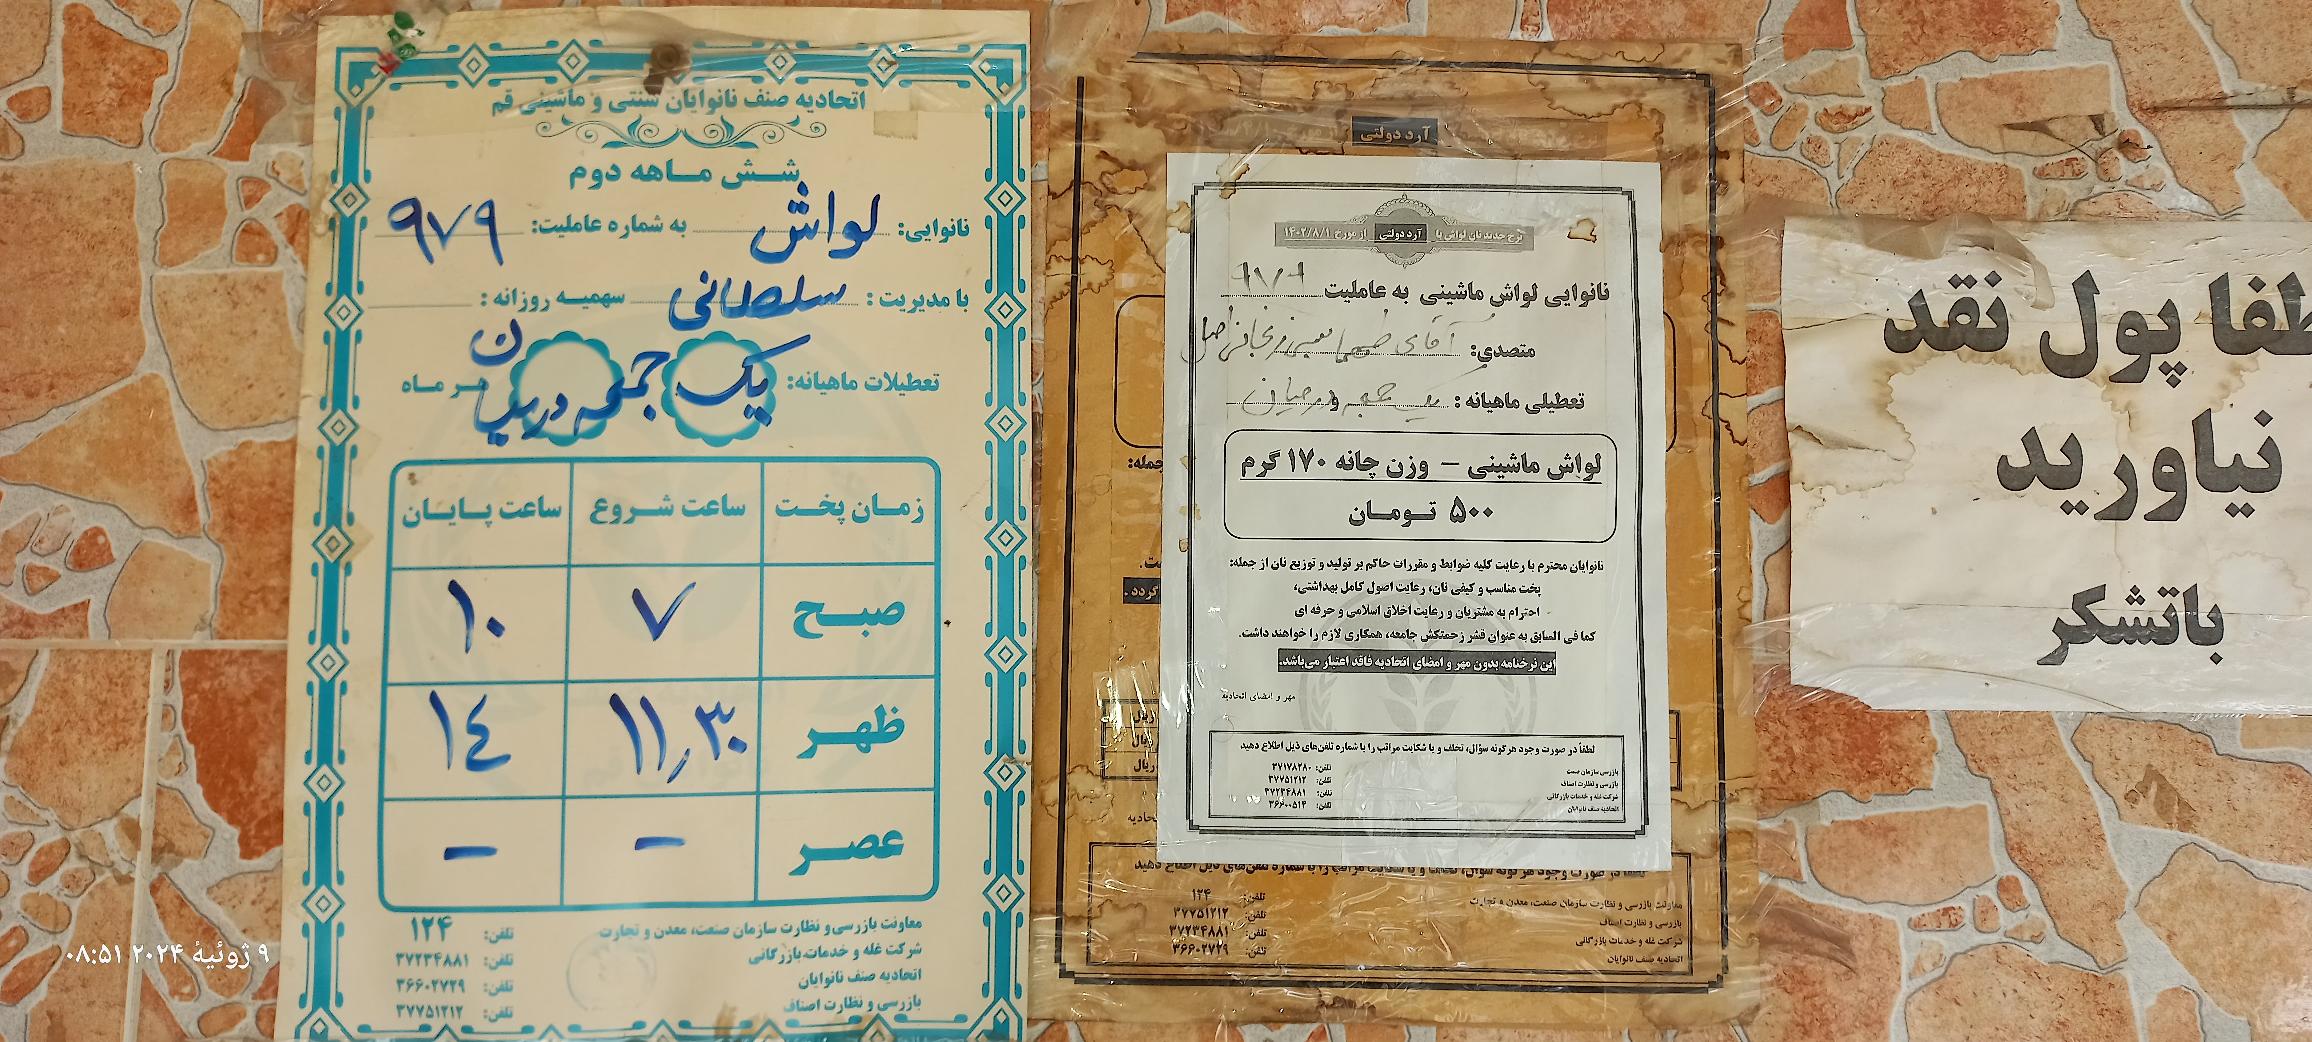 اتحادیه صنف نانوایان سنتی و ماشینی قم
شش ماهه دوم
نانوایی: لواش به شماره عاملیت: ۹۷۹
با مدیریت: سلطانی سهمیه روزانه:
تعطیلات ماهیانه: یک جمعه درمیان هر ماه
زمان پخت ساعت شروع ساعت پایان
صبح ۷ ۱۰
ظهر ۱۱,۳۰ ۱۴
عصر - -
معاونت بازرسی و نظارت سازمان صنعت، معدن و تجارت تلفن: ۱۲۴
شرکت غله و خدمات بازرگانی تلفن: ۳۷۲۳۴۸۸۱
اتحادیه صنف نانوایان تلفن: ۳۶۶۰۲۷۲۹
بازرسی و نظارت اصناف تلفن: ۳۷۷۵۱۲۱۲
۹ ژوئیهٔ ۲۰۲۴ ۰۸:۵۱
آرد دولتی
نرخ جدید نان لواش با آرد دولتی از مورخ ۱۴۰۲/۸/۱
نانوایی لواش ماشینی به عاملیت ۹۷۹
متصدی: آقای
تعطیلی ماهیانه: یک جمعه و درمیان
لواش ماشینی – وزن چانه ۱۷۰ گرم
۵۰۰ تومان
نانوایان محترم با رعایت کلیه ضوابط و مقررات حاکم بر تولید و توزیع نان از جمله:
پخت مناسب و کیفی نان، رعایت اصول کامل بهداشتی،
احترام به مشتریان و رعایت اخلاق اسلامی و حرفه ای
کما فی السابق به عنوان قشر زحمتکش جامعه، همکاری لازم را خواهند داشت.
این نرخنامه بدون مهر و امضای اتحادیه فاقد اعتبار می‌باشد.
مهر و امضای اتحادیه
لطفاً در صورت وجود هرگونه سؤال، تخلف و یا شکایت مراتب را با شماره تلفن‌های ذیل اطلاع دهید
بازرسی سازمان صمت تلفن: ۳۷۱۷۸۲۸۰
بازرسی و نظارت اصناف تلفن: ۳۷۷۵۱۲۱۲
شرکت غله و خدمات بازرگانی تلفن: ۳۷۲۳۴۸۸۱
اتحادیه صنف نانوایان تلفن: ۳۶۶۰۰۵۱۴
جمله:
گردد.
ریال
ریال
ریال
لطفاً در صورت وجود هرگونه سؤال، تخلف و یا شکایت مراتب را با شماره تلفن‌های ذیل اطلاع دهید
معاونت بازرسی و نظارت سازمان صنعت، معدن و تجارت تلفن: ۱۲۴
بازرسی و نظارت اصناف تلفن: ۳۷۷۵۱۲۱۲
شرکت غله و خدمات بازرگانی تلفن: ۳۷۲۳۴۸۸۱
اتحادیه صنف نانوایان تلفن: ۳۶۶۰۲۷۲۹
طفا پول نقد
نیاورید
باتشکر